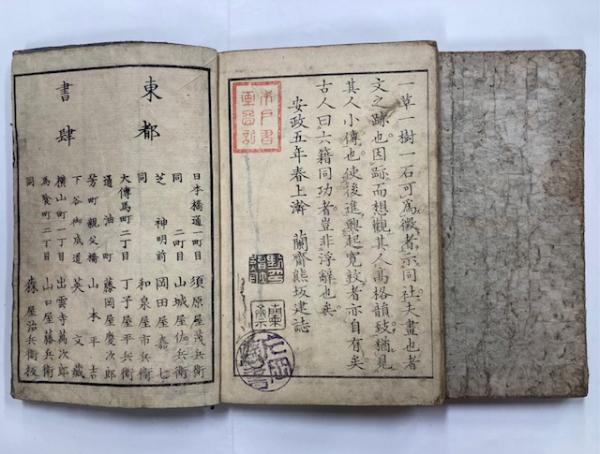 一草一樹一石可爲徴者示同社夫畫也者
文之跡也因跡而想觀其人高格韻致猶見
其人小傳也使後進興起寬敦者亦自有矣
古人曰六籍同功者豈非浮辭也矣
安政五年春上澣 蘭齋熊坂建誌
東都
書肆
日本橋通一町目 須原屋茂兵衛
同 二町目 山城屋佐兵衛
芝 神明前 岡田屋嘉七
同 和泉屋市兵衛
大傳馬町二丁目 丁子屋平兵衛
通油町 藤岡屋慶次郎
芳町親父橋 山本平吉
下谷御成道 英文藏
横山町一丁目 出雲寺萬次郎
馬喰町二丁目 山口屋藤兵衛
同 森屋治兵衛板